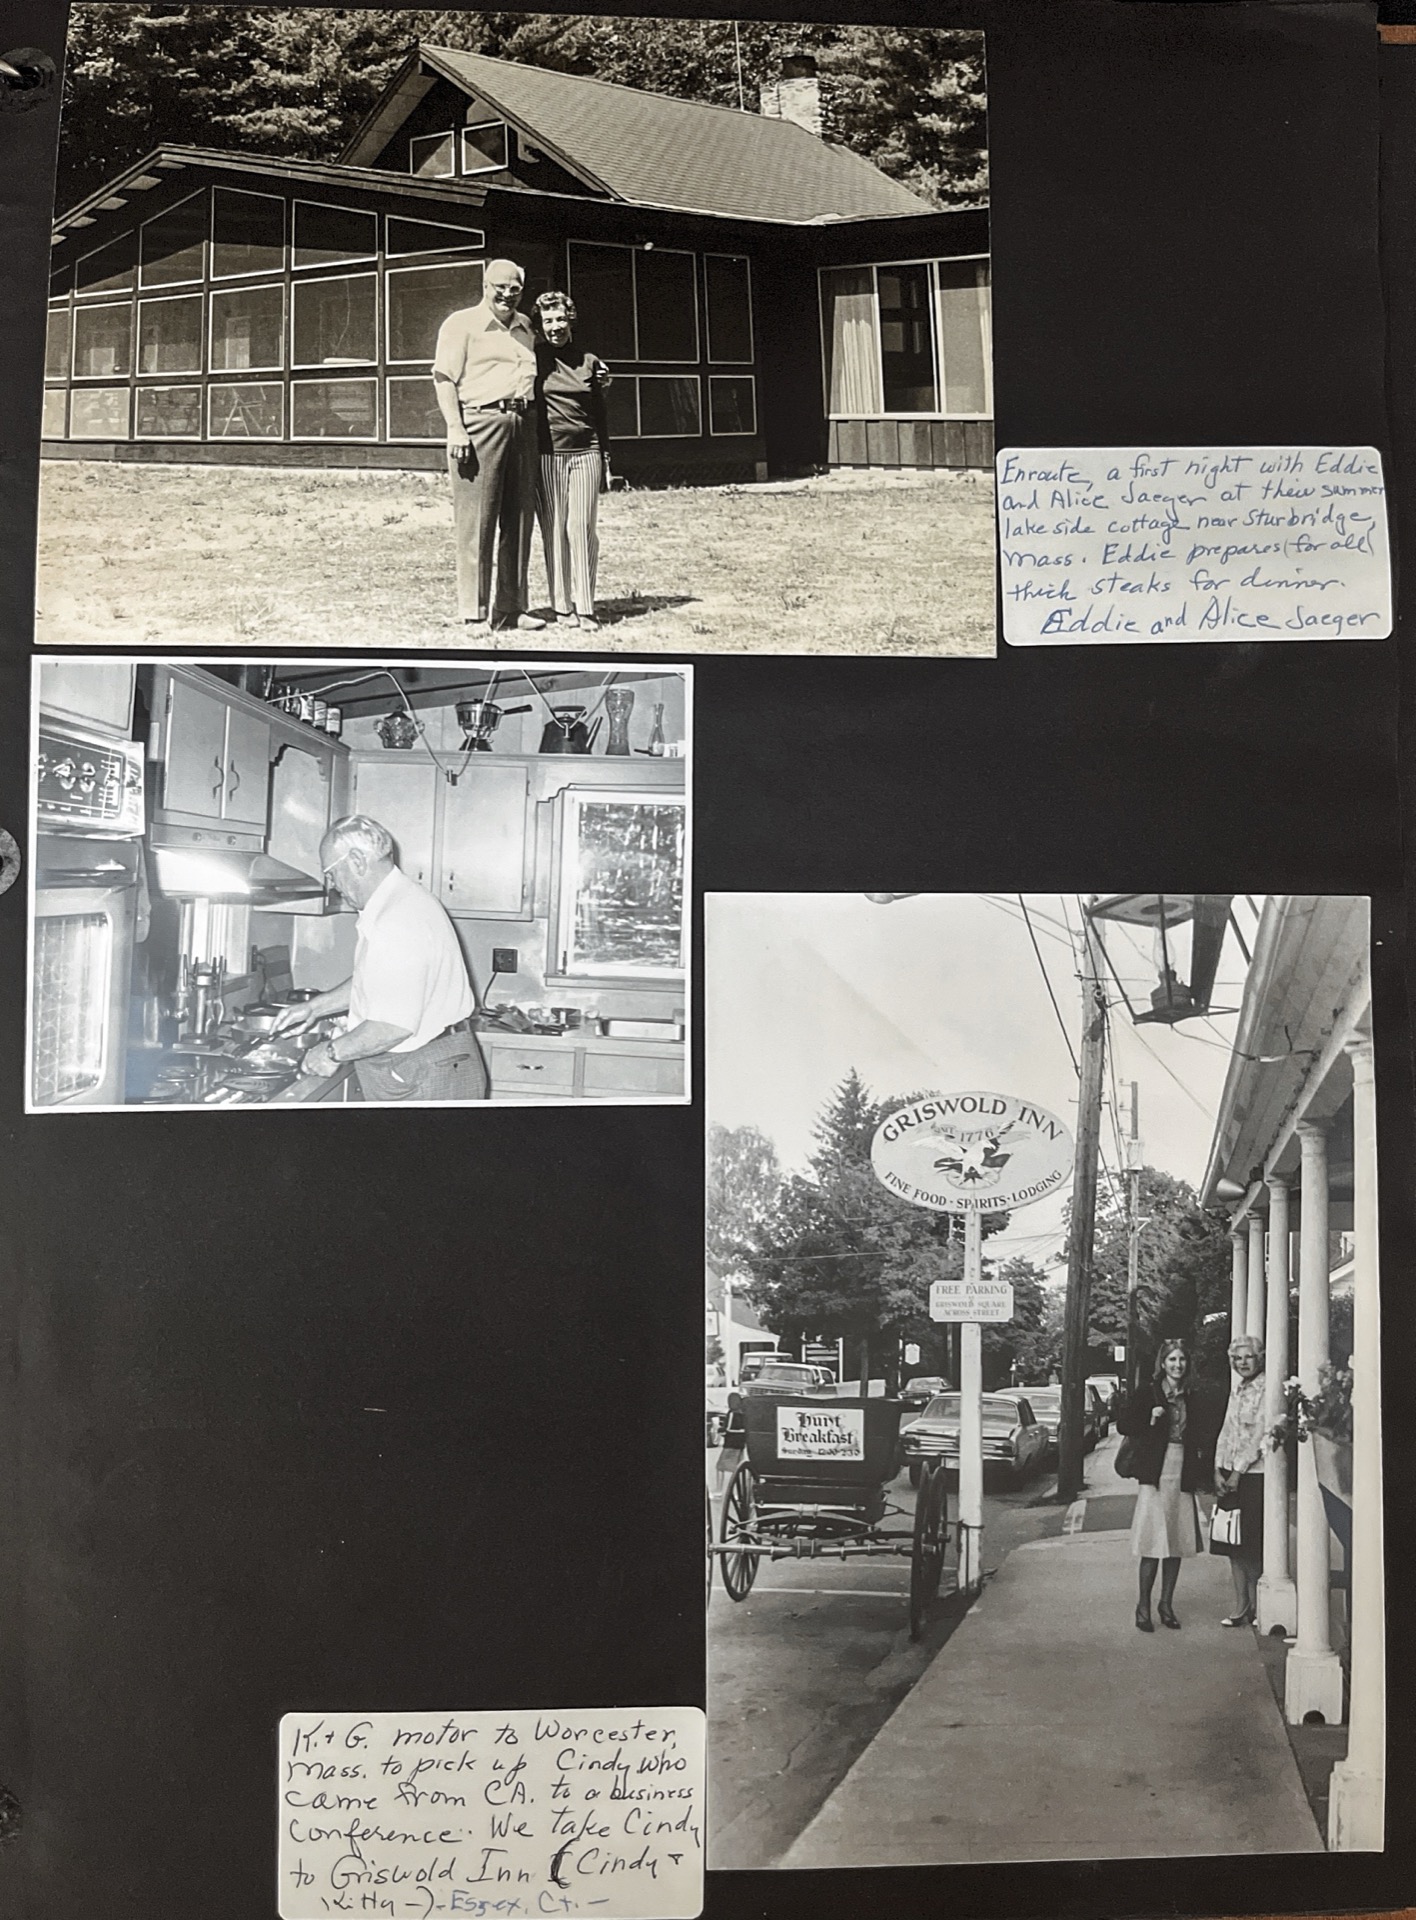 Enroute, a first night with Eddie
and Alice Jaeger at their summer
lake side cottage near Sturbridge,
Mass. Eddie prepares (for all)
thick steaks for dinner.
Eddie and Alice Jaeger
GRISWOLD INN
SINCE 1776
FINE FOOD · SPIRITS · LODGING
FREE PARKING
GRISWOLD SQUARE
ACROSS STREET
Hunt
Breakfast
Sunday
K. + G. motor to Worcester,
Mass. to pick up Cindy who
came from CA. to a business
conference. We take Cindy
to Griswold Inn (Cindy +
Kitty -) - Essex, Ct. -